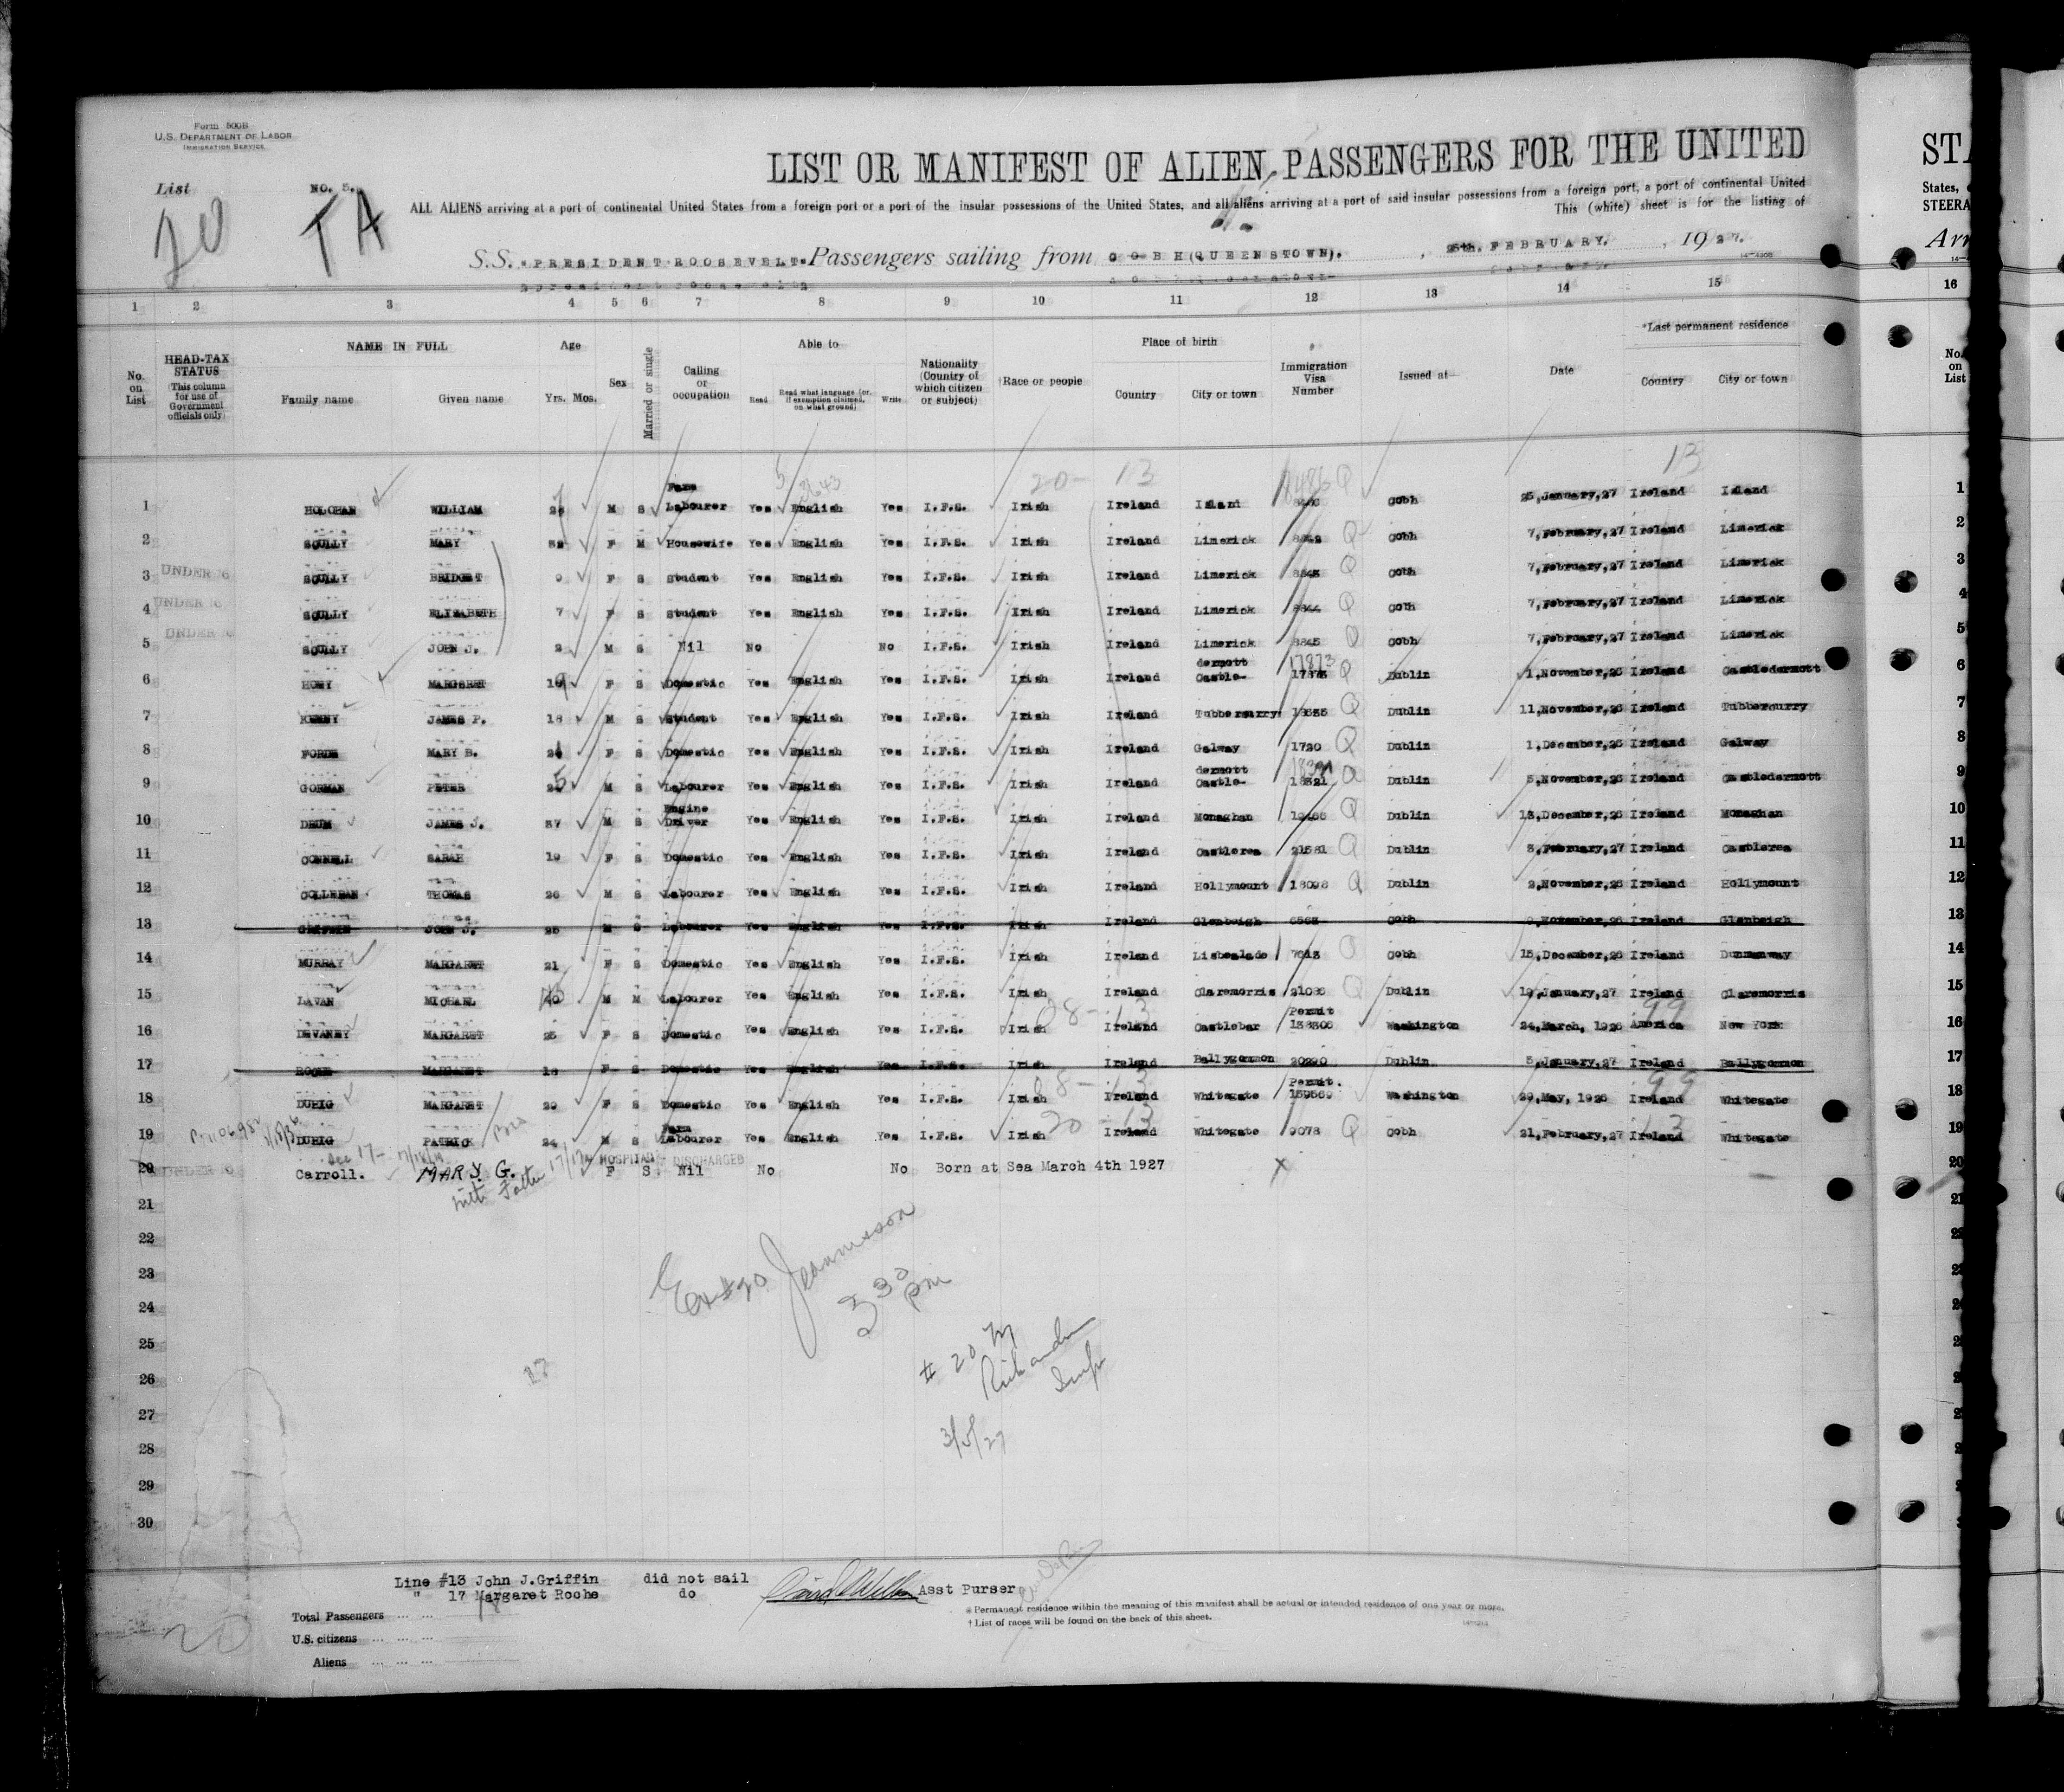 Form 500B
U.S. DEPARTMENT OF LABOR
IMMIGRATION SERVICE
List
NO. 5.
20
TA
LIST OR MANIFEST OF ALIEN PASSENGERS FOR THE UNITED
ALL ALIENS arriving at a port of continental United States from a foreign port or a port of the insular possessions of the United States, and all aliens arriving at a port of said insular possessions from a foreign port, a port of continental United
This (white) sheet is for the listing of
S.S. "PRESIDENT ROOSEVELT" Passengers sailing from COBH (QUEENSTOWN). , 25th. FEBRUARY. , 1927.
1 2 3 4 5 6 7 8 9 10 11 12 13 14 15
No. on List
HEAD-TAX STATUS (This column for use of Government officials only)
NAME IN FULL Family name Given name
Age Yrs. Mos.
Sex
Married or single
Calling or occupation
Able to Read Read what language (or, if exemption claimed, on what ground) Write
Nationality (Country of which citizen or subject)
†Race or people
Place of birth Country City or town
Immigration Visa Number
Issued at—
Date
*Last permanent residence Country City or town
1 HOLOHAN WILLIAM M S Farm Labourer Yes English Yes I.F.S. Irish Ireland Island Cobh 25, January, 27 Ireland Island
2 SCULLY MARY F M Housewife Yes English Yes I.F.S. Irish Ireland Limerick Cobh 7, February, 27 Ireland Limerick
3 UNDER 16 SCULLY BRIDGET 9 F S Student Yes English Yes I.F.S. Irish Ireland Limerick Cobh 7, February, 27 Ireland Limerick
4 UNDER 16 SCULLY ELIZABETH 7 F S Student Yes English Yes I.F.S. Irish Ireland Limerick 8844 Cobh 7, February, 27 Ireland Limerick
5 UNDER 16 SCULLY JOHN J. 2 M S Nil No No I.F.S. Irish Ireland Limerick 8845 Cobh 7, February, 27 Ireland Limerick
6 MARGARET F S Domestic Yes English Yes I.F.S. Irish Ireland Castle-dermott 17873 Dublin 1, November, 26 Ireland Castledermott
7 JAMES P. 18 M S Student Yes English Yes I.F.S. Irish Ireland Tubbercurry Dublin 11, November, 26 Ireland Tubbercurry
8 FORDE MARY B. F S Domestic Yes English Yes I.F.S. Irish Ireland Galway 1720 Dublin 1, December, 26 Ireland Galway
9 GORMAN PETER 25 M S Labourer Yes English Yes I.F.S. Irish Ireland Castle-dermott 18321 Dublin 5, November, 26 Ireland Castledermott
10 DRUM JAMES J. 37 M S Engine Driver Yes English Yes I.F.S. Irish Ireland Monaghan Dublin 13, December, 26 Ireland Monaghan
11 CONNELL SARAH 19 F S Domestic Yes English Yes I.F.S. Irish Ireland Castlerea 21581 Dublin 3, February, 27 Ireland Castlerea
12 COLLERAN THOMAS 26 M S Labourer Yes English Yes I.F.S. Irish Ireland Hollymount 18098 Dublin 2, November, 26 Ireland Hollymount
13 GRIFFIN JOHN J. 25 M S Labourer Yes English Yes I.F.S. Irish Ireland Glenbeigh Cobh 9, November, 26 Ireland Glenbeigh
14 MURRAY MARGARET 21 F S Domestic Yes English Yes I.F.S. Irish Ireland Lisbealade 7613 Cobh 15, December, 26 Ireland Dunmanway
15 LAVAN MICHAEL 40 M M Labourer Yes English Yes I.F.S. Irish Ireland Claremorris Dublin 19, January, 27 Ireland Claremorris
16 DEVANEY MARGARET 25 F S Domestic Yes English Yes I.F.S. Irish Ireland Castlebar Permit 138306 Washington 24, March, 1926 America New York
17 ROCHE MARGARET 18 F S Domestic Yes English Yes I.F.S. Irish Ireland Ballygommon 20290 Dublin 5, January, 27 Ireland Ballygommon
18 DUHIG MARGARET 29 F S Domestic Yes English Yes I.F.S. Irish Ireland Whitegate Permit. 159569 Washington 29, May, 1926 Ireland Whitegate
19 DUHIG PATRICK 24 M S Farm Labourer Yes English Yes I.F.S. Irish Ireland Whitegate 9078 Cobh 21, February, 27 Ireland Whitegate
20 UNDER 16 Carroll. MARY G. IN HOSPITAL - DISCHARGED F S Nil No No Born at Sea March 4th 1927
with Father
21
22
23
24
25
26
27
28
29
30
3 30 pm
# 20
3/5/27
Line #13 John J.Griffin did not sail
" 17 Margaret Roche do Asst Purser
Total Passengers
U.S. citizens
Aliens
20
* Permanent residence within the meaning of this manifest shall be actual or intended residence of one year or more.
† List of races will be found on the back of this sheet.
STA
States,
STEERA
Arr
16
No. on List
1
2
3
4
5
6
7
8
9
10
11
12
13
14
15
16
17
18
19
20